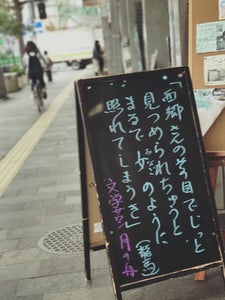 「西郷さんのその目でじっと
見つめられちゅうと
まるで妖のように
照れてしまうき」
(龍馬)
文学サロン 月の舟